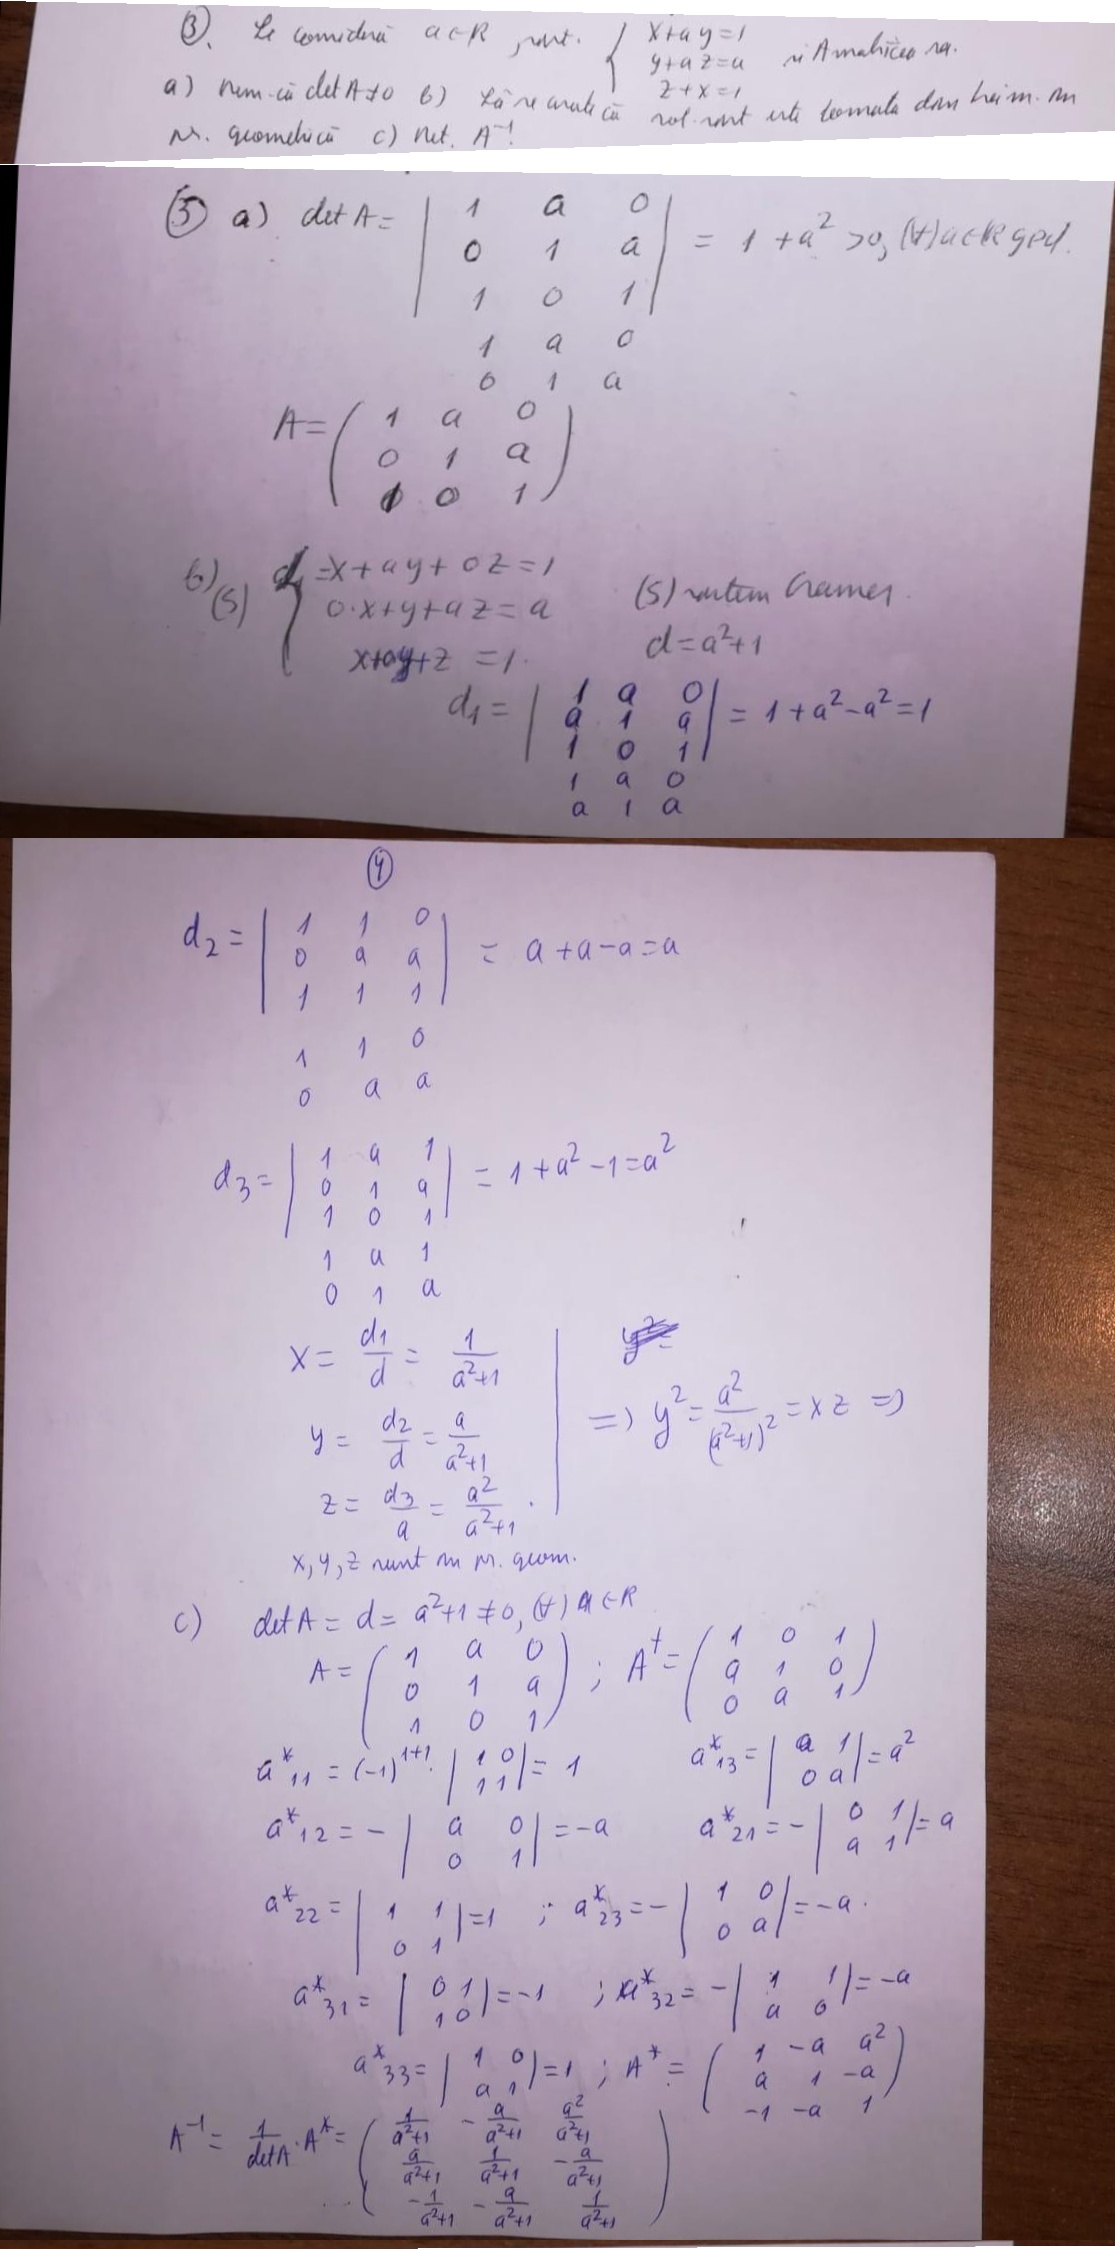 ③. Se consideră a∈R, sist. { x+ay=1
y+az=a și A matricea sa.
z+x=1
a) dem. că det A≠0 b) Să se arate că sol. sist este formată din trei nr. în
pr. geometrică c) Det. A⁻¹!
⑤ a) det A = | 1 a 0
0 1 a | = 1+a² >0, (∀)a∈R
1 0 1 |
1 a 0
0 1 a
A = ( 1 a 0
0 1 a )
1 0 1
b) (S) { x+ay+0z=1
0·x+y+az=a (S) sistem Cramer.
x+z=1. d=a²+1
d₁ = | 1 a 0
a 1 a | = 1+a²-a²=1
1 0 1
1 a 0
a 1 a
④
d₂ = | 1 1 0
0 a a | = a+a-a=a
1 1 1
1 1 0
0 a a
d₃ = | 1 a 1
0 1 a | = 1+a²-1=a²
1 0 1
1 a 1
0 1 a
x = d₁/d = 1/(a²+1)
y = d₂/d = a/(a²+1) => y² = a²/(a²+1)² = xz =>
z = d₃/a = a²/(a²+1).
x, y, z sunt în pr. geom.
c) det A = d = a²+1≠0, (∀) a∈R
A = ( 1 a 0 ; Aᵗ = ( 1 0 1
0 1 a ) a 1 0 )
1 0 1 0 a 1
a*₁₁ = (-1)¹⁺¹· | 1 0 / 1 1 | = 1 a*₁₃ = | a 1 / 0 a | = a²
a*₁₂ = - | a 0 / 0 1 | = -a a*₂₁ = - | 0 1 / a 1 | = a
a*₂₂ = | 1 1 / 0 1 | = 1 ; a*₂₃ = - | 1 0 / 0 a | = -a.
a*₃₁ = | 0 1 / 1 0 | = -1 ; a*₃₂ = - | 1 1 / a 0 | = -a
a*₃₃ = | 1 0 / a 1 | = 1 ; A* = ( 1 -a a²
a 1 -a )
-1 -a 1
A⁻¹ = 1/detA · A* = ( 1/(a²+1) -a/(a²+1) a²/(a²+1)
a/(a²+1) 1/(a²+1) -a/(a²+1) )
-1/(a²+1) -a/(a²+1) 1/(a²+1)